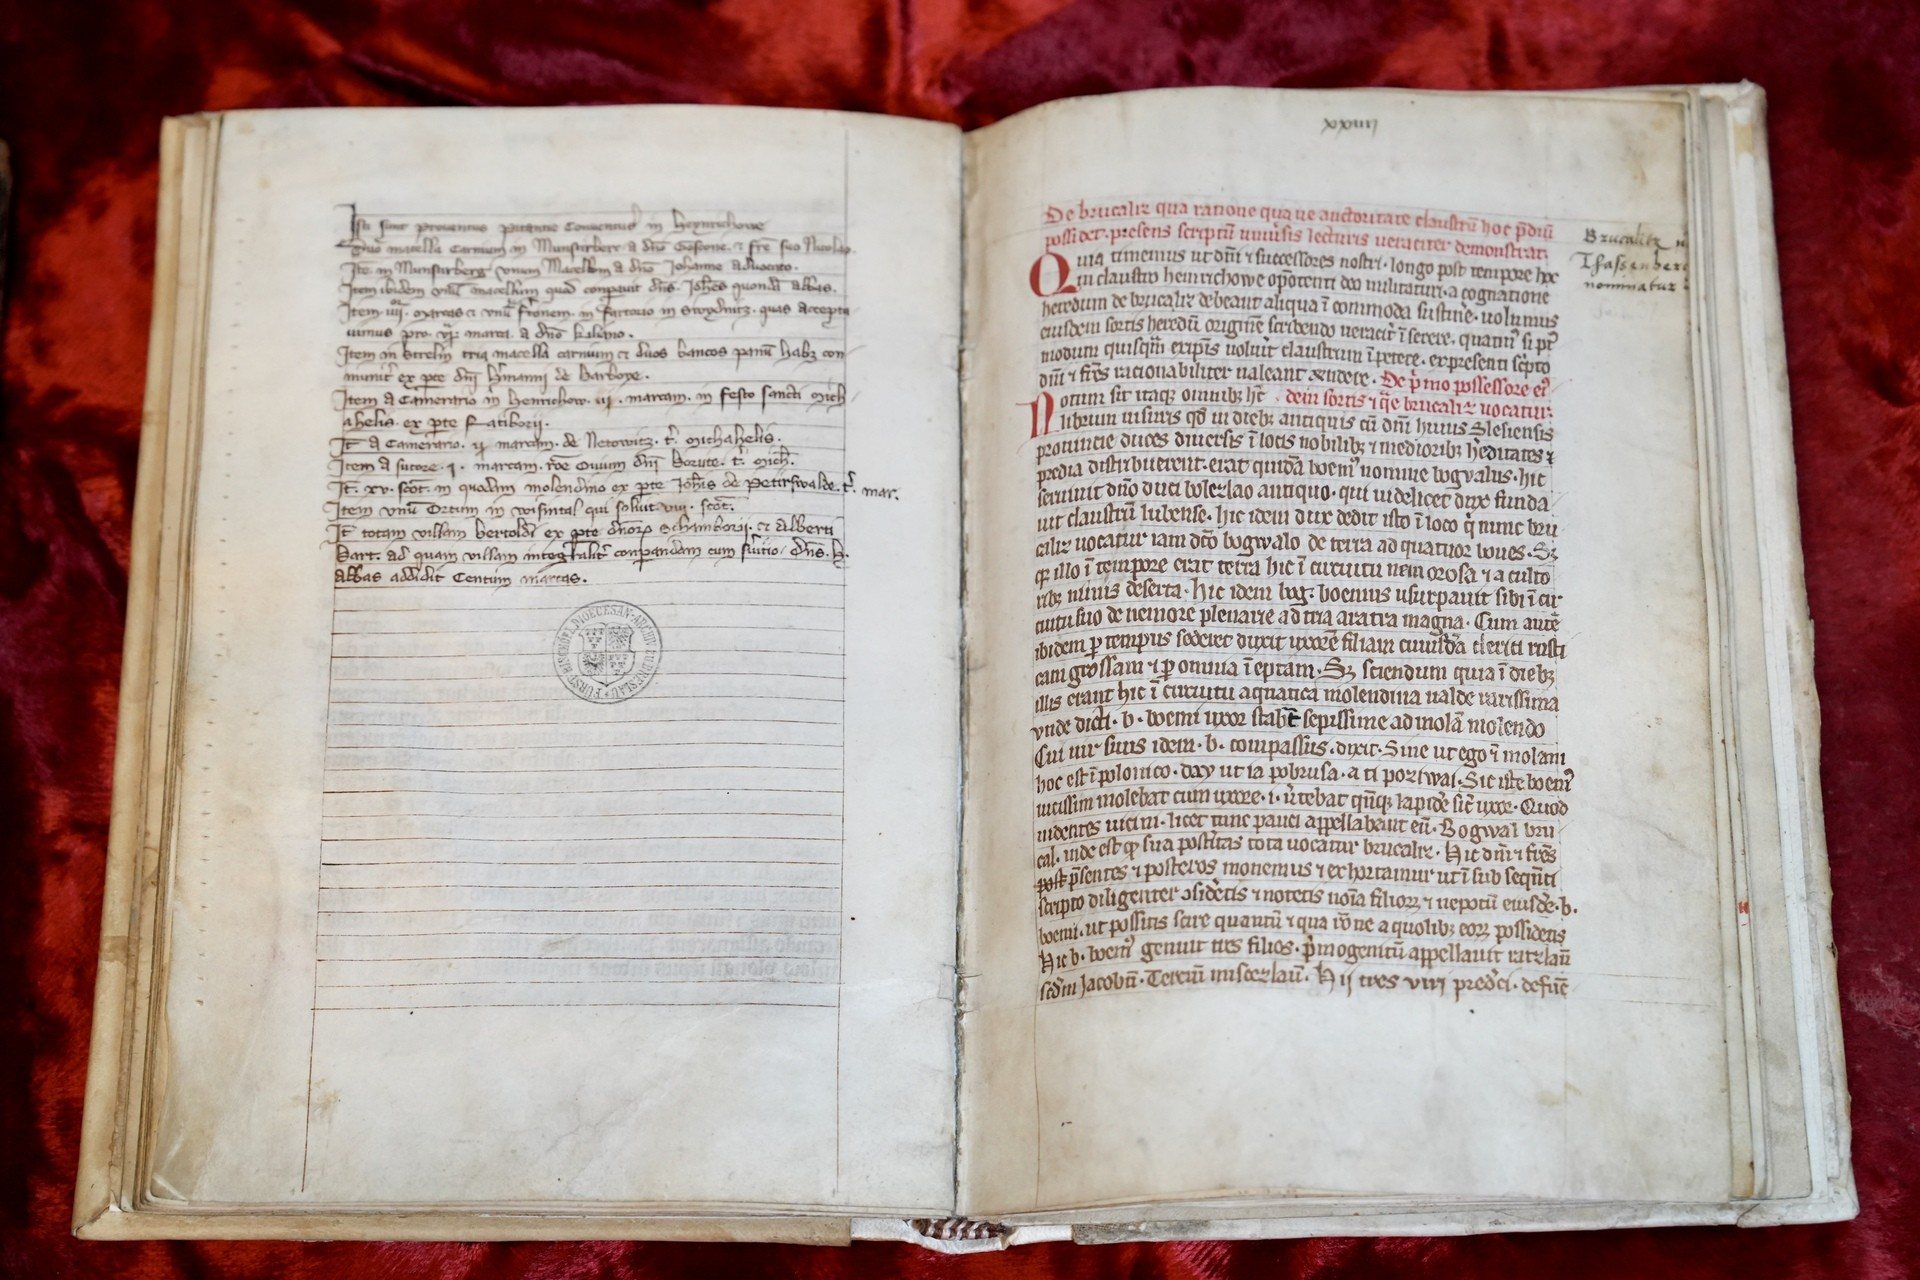 Isti sunt proventus pitantie Conventus in heynrichow
Duo macella carnium in Munstirberc a dno Gossone . et fre suo Nicolao
Ite in Munstirberg unum Macellum a dno Johanne advocato .
Item ibidem unu macellum quod conparavit dns . Johes quondā abbas .
Item iiii or . marcas et unū in in Swydnitz . quas accepta
vimus pro marca . a dno kiliano .
Item in Strelin tria macella carnium et duos bancos panū habz con
munit ex pte dni hmanni de Barboye .
Item a Camerario in henrichow . marcam . in festo sancti mich
ahelis . ex pte Ratiborii .
It a Camerario . marcam . de Netowitz . t . michahelis .
Item a sutore . i . marcam . dni Borute . t . mich .
It . xv . scot . in quodam molendino ex pte Johis de Petirswalde . t . mar .
Item unū Ortum in wisintal qui solvit viii . scot .
It totam villam bertoldi ex pte dnor Schamborii . et alberti
Bart . ad quam villam integralit conparandam cum dns . h .
abbas addidit Centum marcas .
FURSTBISCHÖFL. DIOECESAN-ARCHIV ZU BRESLAU
xxiiii
De brucaliz qua ratione qua ve auctoritate claustrū hoc pdiū
possidet . presens scriptū univsis lecturis veraciter demonstrat .
Brucalitz
Thassenberc
nominatur
Quia timemus ut dnī et successores nostri . longo post tempore hoc
in claustro heinrichowe opotenti deo militaturi . a cognatione
heredum de brucaliz debeant aliqua ī commoda sustine . volumus
eiusdem sortis heredū origine scribendo veracit ī serere . quatin si pt
modum quisqm ex ipis voluit claustrum ī petere . ex presenti scpto
dnī et frēs rationabiliter valeant rndere . De pmo possessore ei
dem sortis et qre brucaliz vocatur .
Notum sit itaqz omnibz hc
librum visuris qd in diebz antiquis cū dnī huius Slesiensis
provincie duces diversis ī locis nobilibz et mediocribz hereditates et
predia distribuerent . erat quidā boem nomine bogvalus . hic
servivit dno duci bolezlao antiquo . qui videlicet dux funda
vit claustrū lubense . hic idem dux dedit isto ī loco q nunc bru
caliz vocatur iam dcō bogwalo de terra ad quatuor boves . Sz
qz illo ī tempore erat terra hic ī circuitu nemorosa et a culto
ribz nimis deserta . hic idem bog . boemus usurpavit sibi ī cir
cuitu suo de nemore plenarie ad tria aratra magna . Cum autē
ibidem p tempus sederet duxit uxorē filiam cuiusdā clerici rusti
cam grossam et p omnia ī eptam . Sz sciendum quia ī diebz
illis erant hic ī circuitu aquatica molendina valde rarissima
unde dicti . b . boemi uxor stabat sepissime ad molā molendo
Cui vir suus idem . b . compassus . dixit . Sine ut ego ī molam
hoc est ī polonico . day ut ia pobrusa . a ti poziwai . Sic iste boem
vicissim molebat cum uxore . i . vtebat qnqz lapidē sic uxor . Quod
videntes vicini . licet tunc pauci appellabant eū . Bogwal bru
cal . inde est qz sua posteritas tota vocatur brucaliz . hic dnī et frēs
post psentes et posteros monemus et exhortamur ut ī sub seqnti
scripto diligenter osidetis et notetis noīa filior et nepotū eiusdē . b .
boemi . ut possitis scire quantū et qua rōne a quolibz eorz possidetis
hic b . boem genuit tres filios . pmogenitū appellavit racizlaū
scdm Jacobū . Terciū miscezlaū . hii tres viri predci . defunc